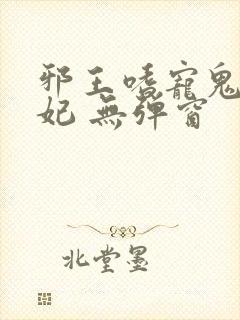 邪王嗜寵鬼
妃 無彈窗
北堂墨